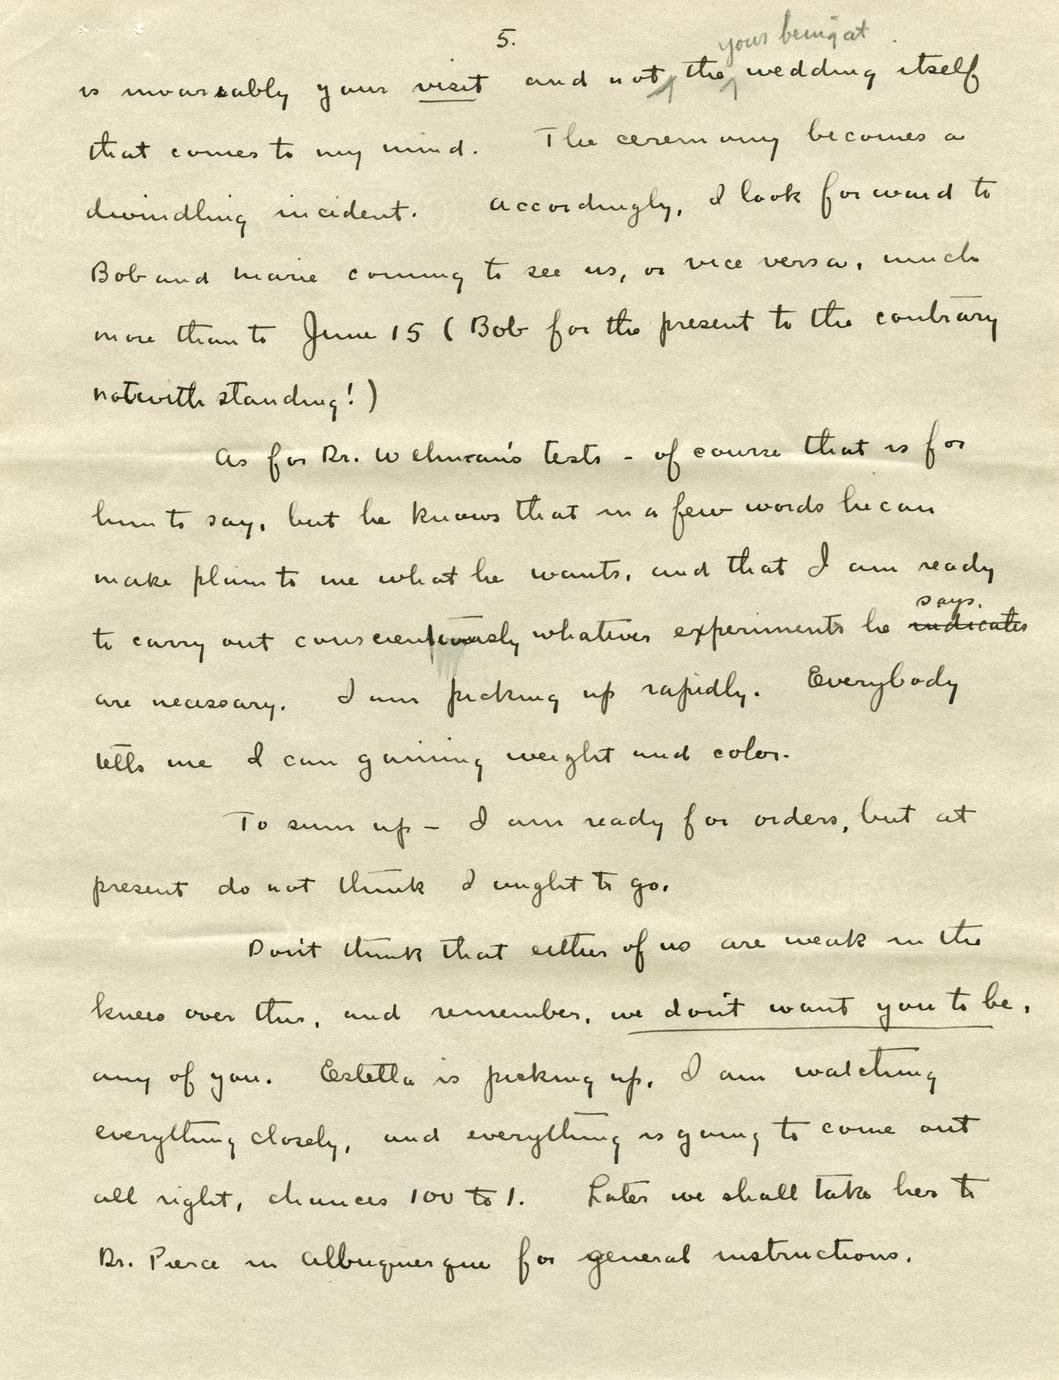 5.
your being at
is invariably your visit and not the wedding itself
that comes to my mind. The ceremony becomes a
dwindling incident. Accordingly, I look forward to
Bob and Marie coming to see us, or vice versa, much
more than to June 15 (Bob for the present to the contrary
notwithstanding!)
As for Dr. Welman's tests - of course that is for
him to say, but he knows that in a few words he can
make plain to me what he wants, and that I am ready
says.
to carry out conscientiously whatever experiments he indicates
are necessary. I am picking up rapidly. Everybody
tells me I am gaining weight and color.
To sum up - I am ready for orders, but at
present do not think I ought to go.
Don't think that either of us are weak in the
knees over this, and remember, we don't want you to be,
any of you. Estella is picking up, I am watching
everything closely, and everything is going to come out
all right, chances 100 to 1. Later we shall take her to
Dr. Pierce in Albuquerque for general instructions.